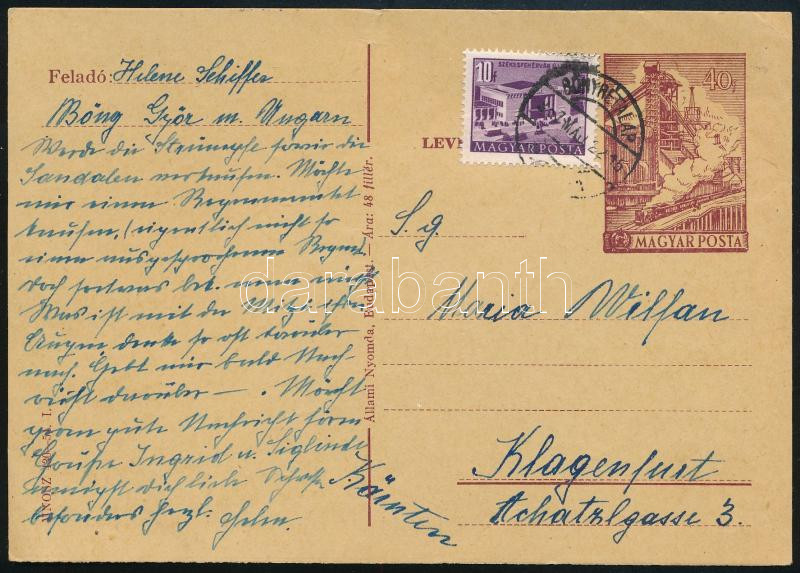 Feladó: Helene Schiffer
Bőny Győr m. Ungarn
Werde die Strümpfe sowie die
Sandalen verkaufen. Möchte
mir einen Regenmantel
kaufen, (eigentlich nicht so
einen ausgesprochenen Regenm.
doch so etwas
Was ist mit
Augen, denke so oft darüber
nach. Gebt mir bald Nach
richt darüber —. Möcht
gern gute Nachricht hören
Grüße Ingrid u. Siglinde
dich liebe
besonders herzl. Helen.
INOSZ
Állami Nyomda, Budapest. — Ára: 48 fillér.
10f
SZÉKESFEHÉRVÁR
MAGYAR POSTA
40f
MAGYAR POSTA
LEV
S. g.
Maria Wilfan
Klagenfurt
Achatzlgasse 3.
Kärnten
darabanth